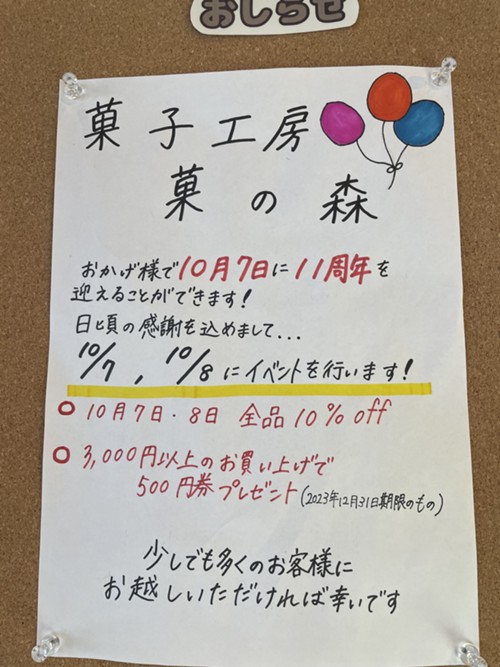 おしらせ
菓子工房
菓の森
おかげ様で10月7日に11周年を
迎えることができます!
日頃の感謝を込めまして...
10/7, 10/8にイベントを行います!
○ 10月7日・8日 全品10%off
○ 3,000円以上のお買い上げで
500円券プレゼント(2023年12月31日期限のもの)
少しでも多くのお客様に
お越しいただければ幸いです